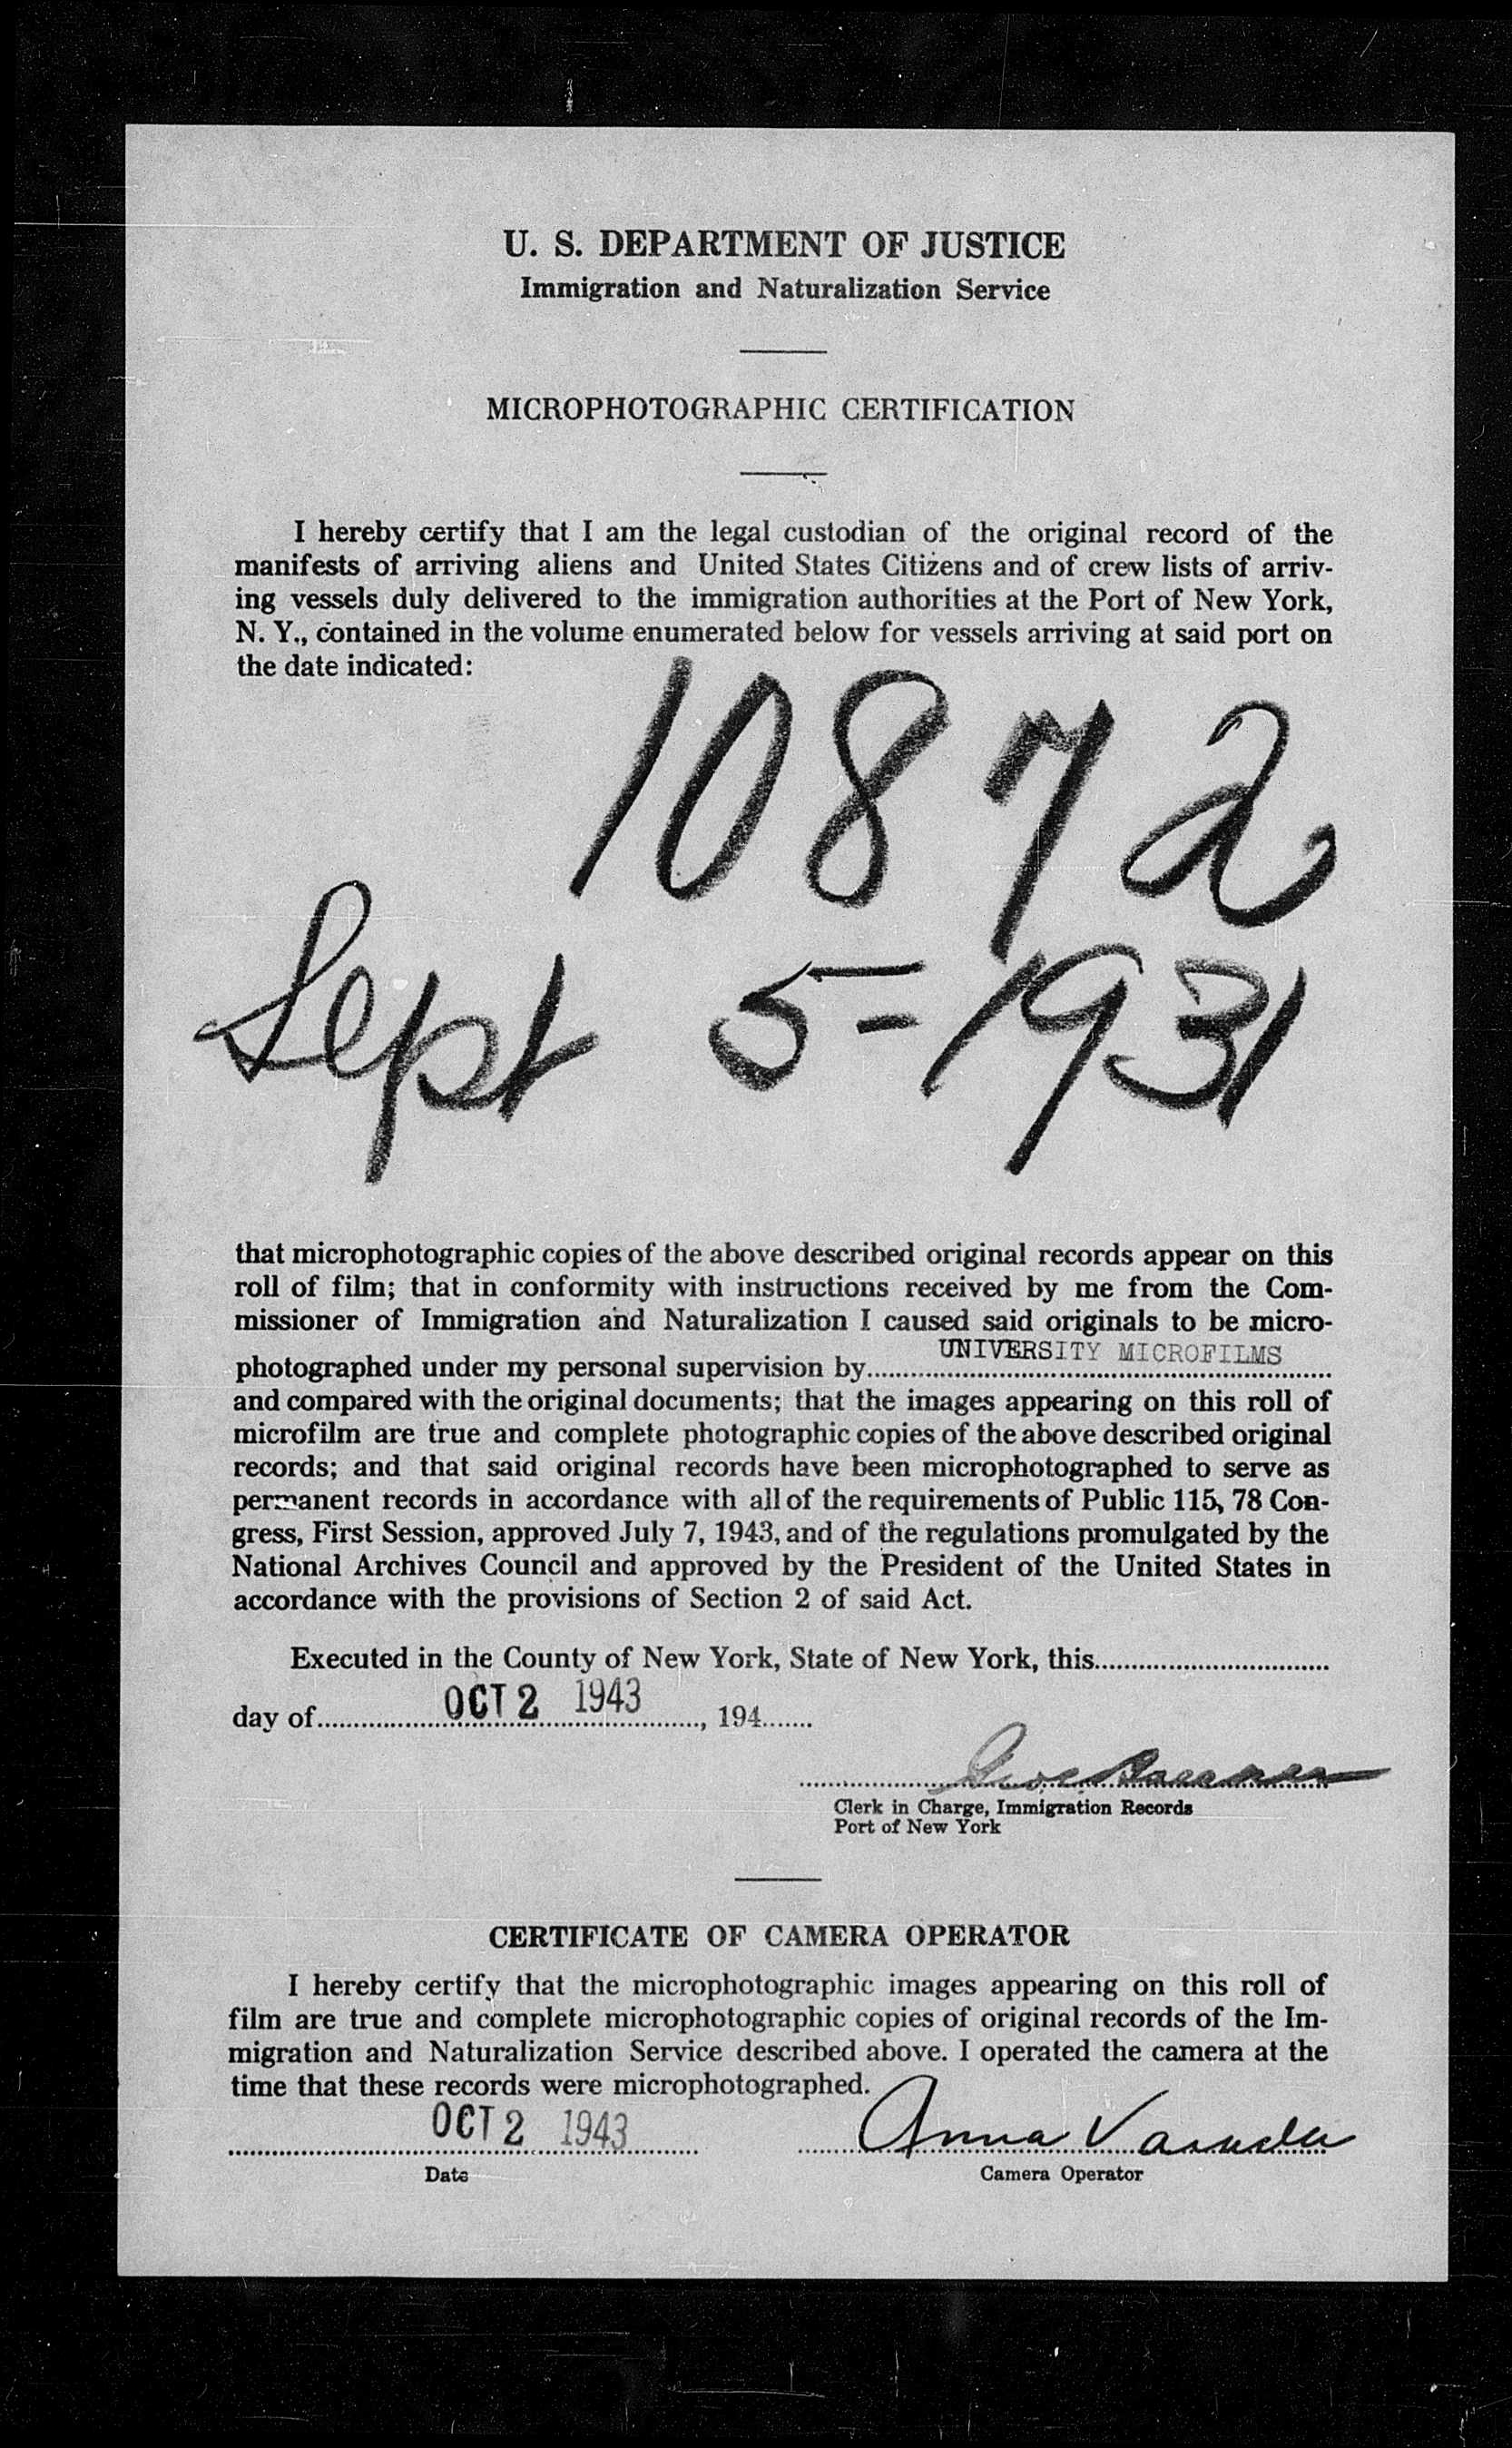 U. S. DEPARTMENT OF JUSTICE
Immigration and Naturalization Service
MICROPHOTOGRAPHIC CERTIFICATION
I hereby certify that I am the legal custodian of the original record of the
manifests of arriving aliens and United States Citizens and of crew lists of arriv-
ing vessels duly delivered to the immigration authorities at the Port of New York,
N. Y., contained in the volume enumerated below for vessels arriving at said port on
the date indicated:
10872
Sept 5-1931
that microphotographic copies of the above described original records appear on this
roll of film; that in conformity with instructions received by me from the Com-
missioner of Immigration and Naturalization I caused said originals to be micro-
UNIVERSITY MICROFILMS
photographed under my personal supervision by
and compared with the original documents; that the images appearing on this roll of
microfilm are true and complete photographic copies of the above described original
records; and that said original records have been microphotographed to serve as
permanent records in accordance with all of the requirements of Public 115, 78 Con-
gress, First Session, approved July 7, 1943, and of the regulations promulgated by the
National Archives Council and approved by the President of the United States in
accordance with the provisions of Section 2 of said Act.
Executed in the County of New York, State of New York, this
day of OCT 2 1943, 194
Clerk in Charge, Immigration Records
Port of New York
CERTIFICATE OF CAMERA OPERATOR
I hereby certify that the microphotographic images appearing on this roll of
film are true and complete microphotographic copies of original records of the Im-
migration and Naturalization Service described above. I operated the camera at the
time that these records were microphotographed.
OCT 2 1943 Anna
Date Camera Operator